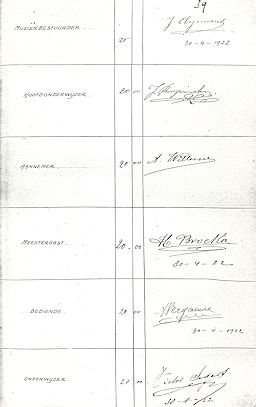 39
MUZIEKBESTUURDER
20
30-4-1922
HOOFDONDERWIJZER
20 00
AANNEMER
20 00 A Willems
MEESTERGAST
20 00
30-4-22
BEDIENDE
20 00
30-4-1922
ONDERWIJZER
20 00 Victor
30-4-/22